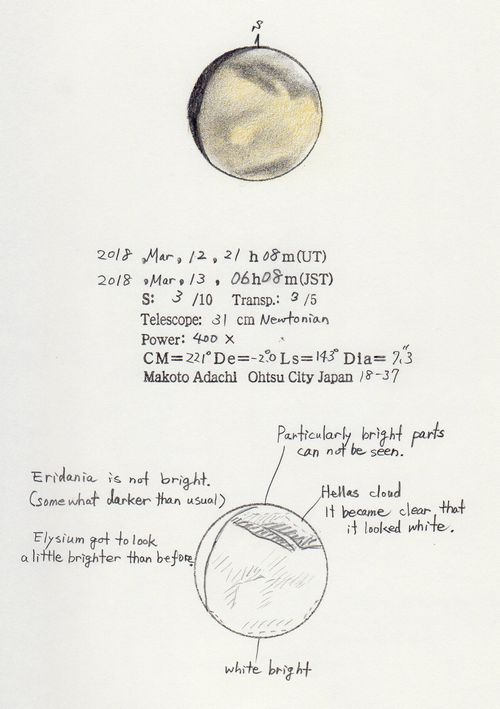 S
2018 , Mar , 12 , 21 h 08 m (UT)
2018 , Mar , 13 , 06 h 08 m (JST)
S: 3 /10 Transp.: 3 /5
Telescope: 31 cm Newtonian
Power: 400 ×
CM= 221° De= -2.°0 Ls= 143° Dia= 7."3
Makoto Adachi Ohtsu City Japan 18-37
Particularly bright parts
can not be seen.
Eridania is not bright.
(somewhat darker than usual)
Hellas cloud
It became clear that
it looked white.
Elysium got to look
a little brighter than before.
white bright